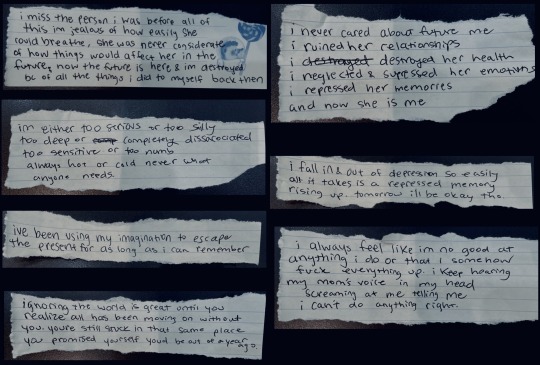 i miss the person i was before all of
this im jealous of how easily she
could breathe, she was never considerate
of how things would affect her in the
future, now the future is here & im destroyed
bc of all the things i did to myself back then
im either too serious or too silly
too deep or completely dissacociated
too sensitive or too numb
always hot or cold never what
anyone needs
ive been using my imagination to escape
the present for as long as i can remember
ignoring the world is great until you
realize all has been moving on without
you. you're still stuck in that same place
you promised yourself you'd be out of a year
ago.
i never cared about future me
i ruined her relationships
i destroyed her health
i neglected & supressed her emotions
i repressed her memories
and now she is me
i fall in & out of depression so easily
all it takes is a repressed memory
rising up. tomorrow i'll be okay tho.
i always feel like im no good at
anything i do or that i somehow
fuck everything up. i keep hearing
my mom's voice in my head
screaming at me telling me
i can't do anything right.